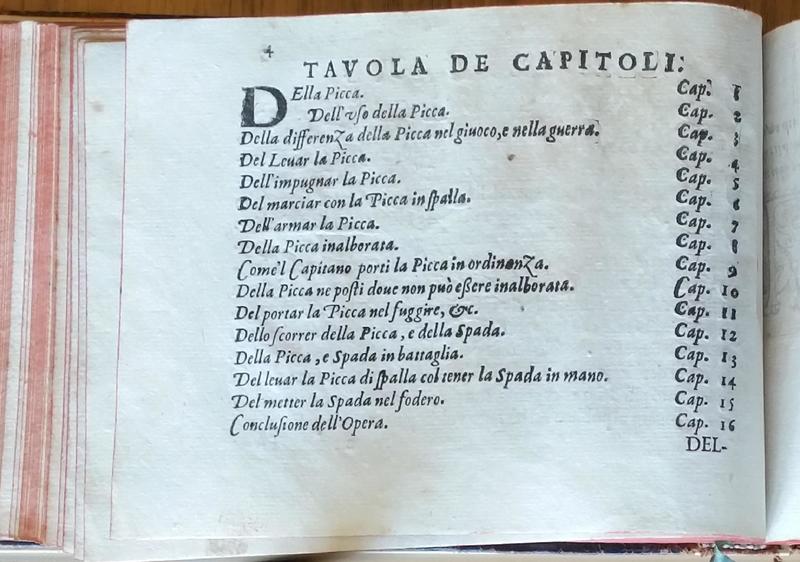 4
TAVOLA DE CAPITOLI:
DElla Picca. Cap. 1
Dell'vſo della Picca. Cap. 2
Della differenza della Picca nel giuoco, e nella guerra. Cap. 3
Del Leuar la Picca. Cap. 4
Dell'impugnar la Picca. Cap. 5
Del marciar con la Picca in ſpalla. Cap. 6
Dell'armar la Picca. Cap. 7
Della Picca inalborata. Cap. 8
Come'l Capitano porti la Picca in ordinenza. Cap. 9
Della Picca ne poſti doue non può eßere inalborata. Cap. 10
Del portar la Picca nel fuggire, &c. Cap. 11
Dello ſcorrer della Picca, e della Spada. Cap. 12
Della Picca, e Spada in battaglia. Cap. 13
Del leuar la Picca di ſpalla col tener la Spada in mano. Cap. 14
Del metter la Spada nel fodero. Cap. 15
Concluſione dell'Opera. Cap. 16
DEL-